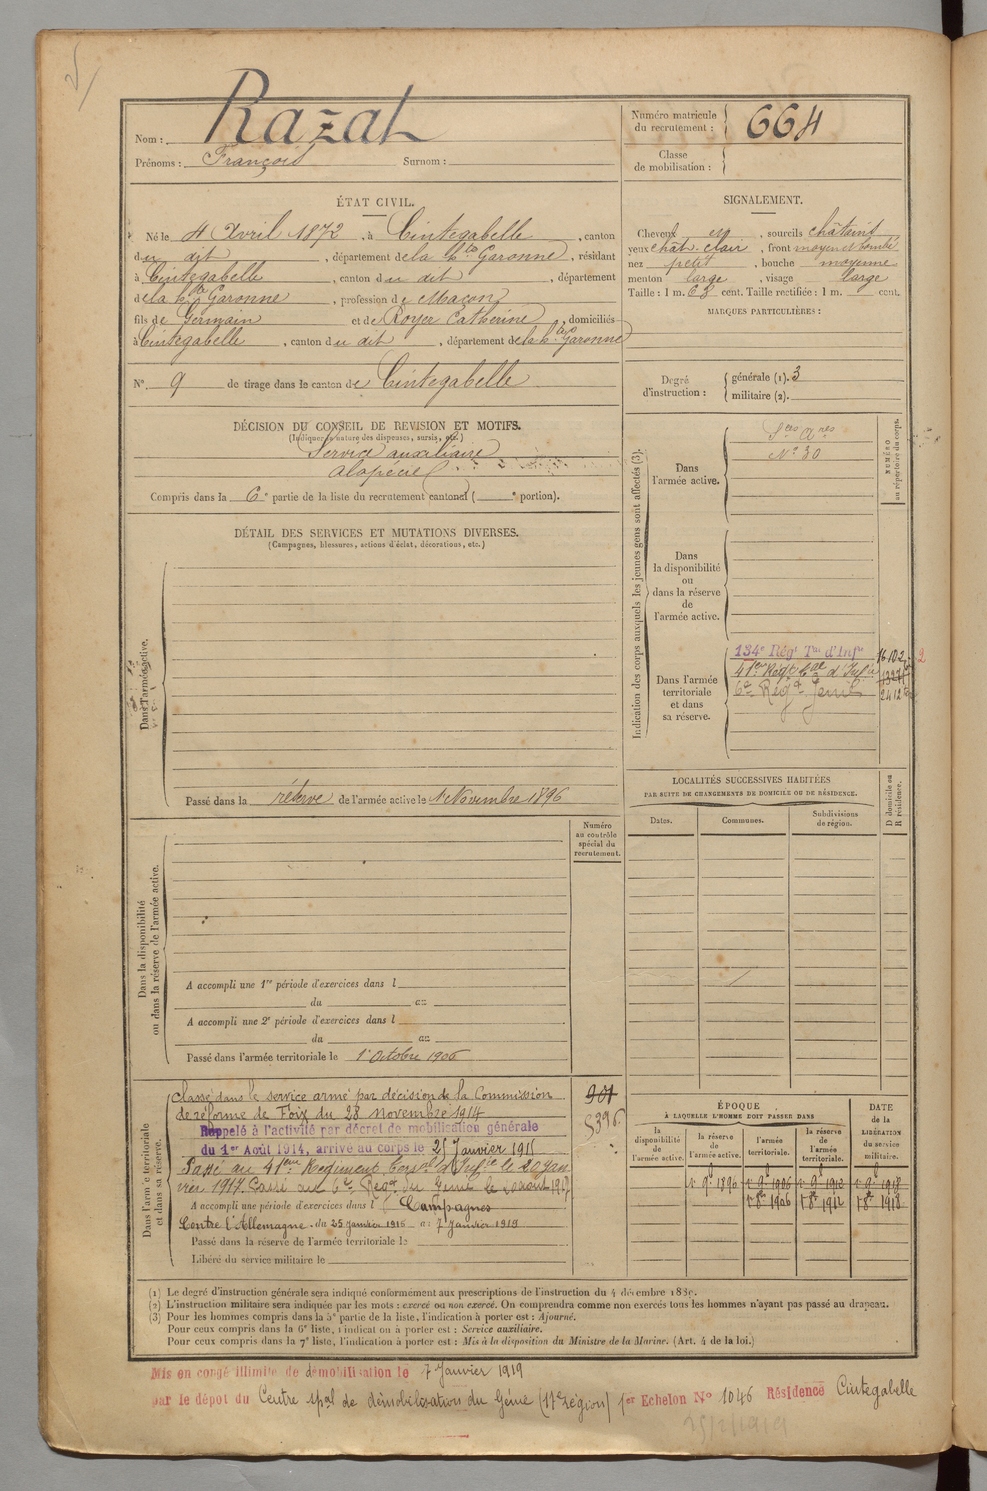 Nom : Razat
Prénoms : François Surnom :
Numéro matricule du recrutement : 664
Classe de mobilisation :
ÉTAT CIVIL.
Né le 4 Avril 1872, à Cintegabelle, canton
du dit, département de la hte Garonne, résidant
à Cintegabelle, canton du dit, département
de la hte Garonne, profession de Maçon
fils de Germain et de Royer Catherine, domiciliés
à Cintegabelle, canton du dit, département de la hte Garonne
N° 9 de tirage dans le canton de Cintegabelle
SIGNALEMENT.
Cheveux en, sourcils châtains
yeux chât. clair, front moyen et bombé
nez petit, bouche moyenne
menton large, visage large
Taille : 1 m. 68 cent. Taille rectifiée : 1 m. cent.
MARQUES PARTICULIÈRES :
Degré d'instruction : générale (1). 3
militaire (2).
DÉCISION DU CONSEIL DE REVISION ET MOTIFS.
(Indiquer la nature des dispenses, sursis, etc.)
Service auxiliaire
alopécie
Compris dans la 6e partie de la liste du recrutement cantonal ( e portion).
DÉTAIL DES SERVICES ET MUTATIONS DIVERSES.
(Campagnes, blessures, actions d'éclat, décorations, etc.)
Dans l'armée active.
Passé dans la réserve de l'armée active le 1 Novembre 1896
Indication des corps auxquels les jeunes gens sont affectés (3).
NUMÉRO au répertoire du corps.
Dans l'armée active.
Sces Ares
N° 30
Dans la disponibilité ou dans la réserve de l'armée active.
Dans l'armée territoriale et dans sa réserve.
134e Régt Tal d'Infie
41eme Régt tal d'Infie
6e Regt Genie
LOCALITÉS SUCCESSIVES HABITÉES
PAR SUITE DE CHANGEMENTS DE DOMICILE OU DE RÉSIDENCE.
Dates. Communes. Subdivisions de région. D domicile ou R résidence.
Numéro au contrôle spécial du recrutement.
Dans la disponibilité ou dans la réserve de l'armée active.
A accompli une 1re période d'exercices dans l
du au
A accompli une 2e période d'exercices dans l
du au
Passé dans l'armée territoriale le 1er Octobre 1906
Dans l'armée territoriale et dans sa réserve.
classé dans le service armé par décision de la Commission
de réforme de Foix du 28 novembre 1914
Rappelé à l'activité par décret de mobilisation générale
du 1er Août 1914, arrivé au corps le 25 Janvier 1915
Passé au 41eme Régiment Terral d'Infie le 20 Jan
vier 1917. Passé au 6e Regt du Genie le 20 aout 1917
A accompli une période d'exercices dans l Campagnes
Contre l'Allemagne du 25 janvier 1915 au 7 Janvier 1919
Passé dans la réserve de l'armée territoriale le
Libéré du service militaire le
901
ÉPOQUE
À LAQUELLE L'HOMME DOIT PASSER DANS
la disponibilité de l'armée active. la réserve de l'armée active. l'armée territoriale. la réserve de l'armée territoriale. DATE de la LIBÉRATION du service militaire.
1 9b 1896 1 9b 1906 1 9b 1912 1 9b 1918
1 8b 1906 1 8b 1912 1 8b 1918
(1) Le degré d'instruction générale sera indiqué conformément aux prescriptions de l'instruction du 4 décembre 1889.
(2) L'instruction militaire sera indiquée par les mots : exercé ou non exercé. On comprendra comme non exercés tous les hommes n'ayant pas passé au drapeau.
(3) Pour les hommes compris dans la 5e partie de la liste, l'indication à porter est : Ajourné.
Pour ceux compris dans la 6e liste, l'indication à porter est : Service auxiliaire.
Pour ceux compris dans la 7e liste, l'indication à porter est : Mis à la disposition du Ministre de la Marine. (Art. 4 de la loi.)
Mis en congé illimité de démobilisation le 7 Janvier 1919
par le dépôt du Centre spal de démobilisation du Génie (17e région) 1er Echelon N° 1046 Résidence Cintegabelle